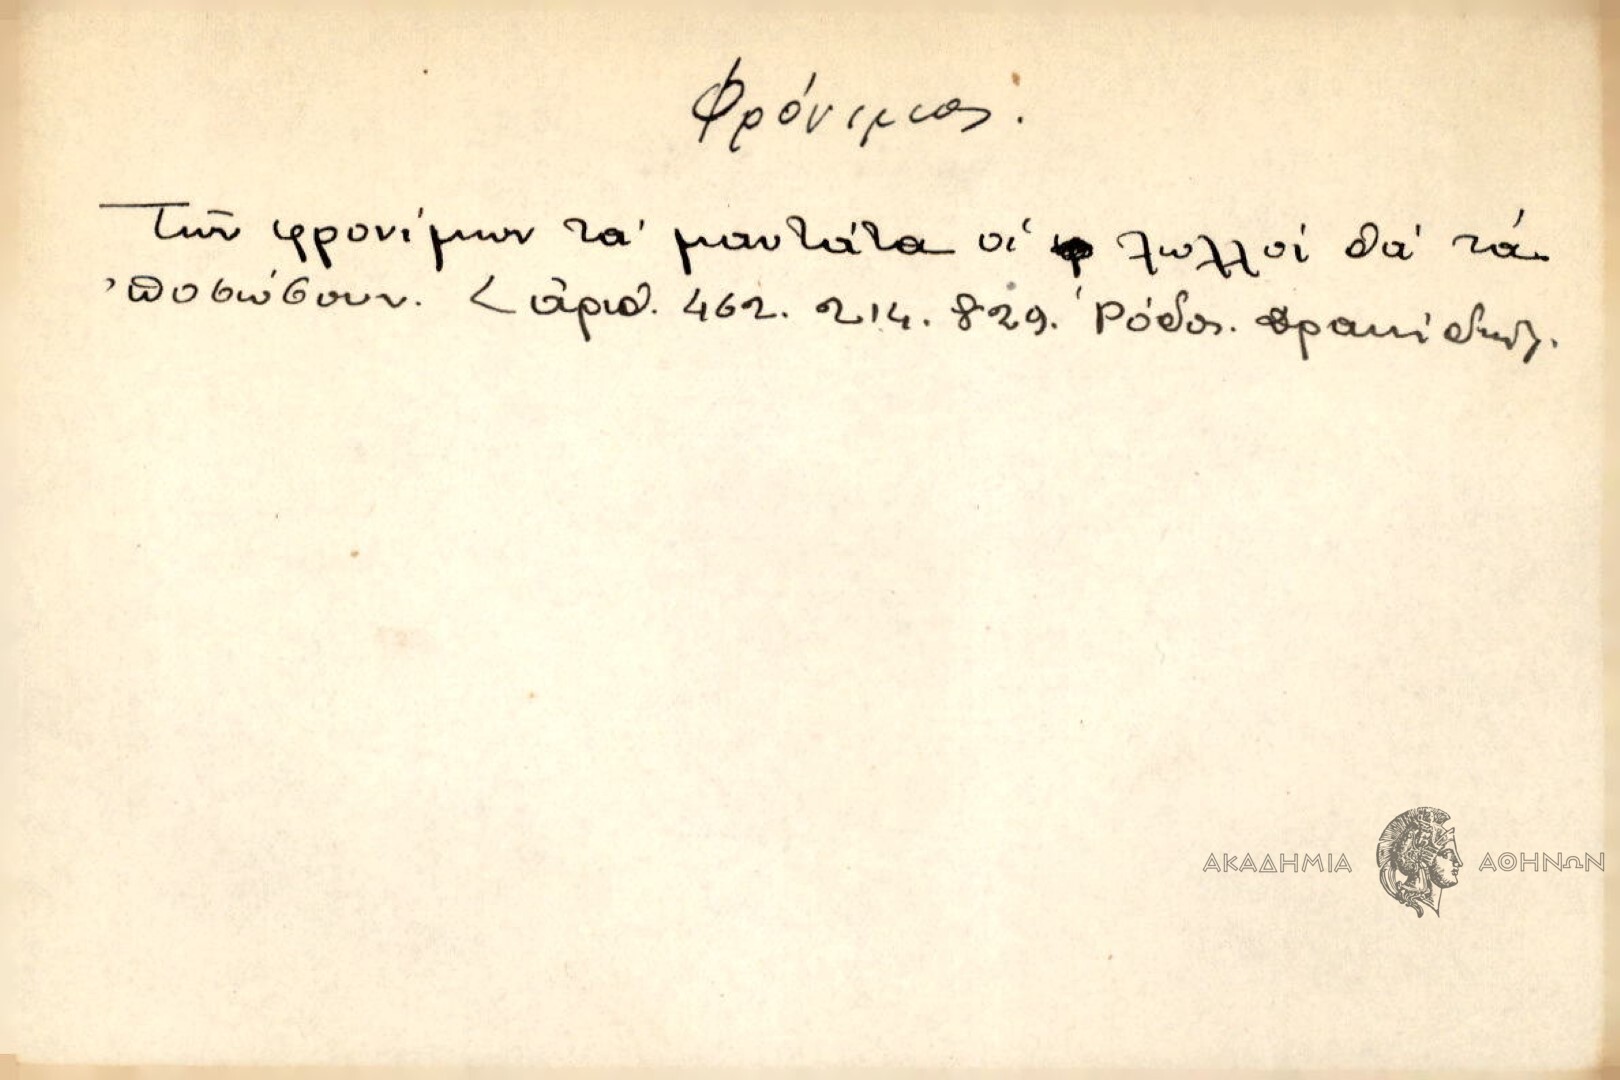 Φρόνιμος.
Τῶν φρονίμων τὰ μαντάτα οἱ λωλλοί θὰ τά
'ποσώσουν. < ἀριθ. 462. 214. 829. Ῥόδος. Βρακίδης.
ΑΚΑΔΗΜΙΑ ΑΘΗΝΩΝ